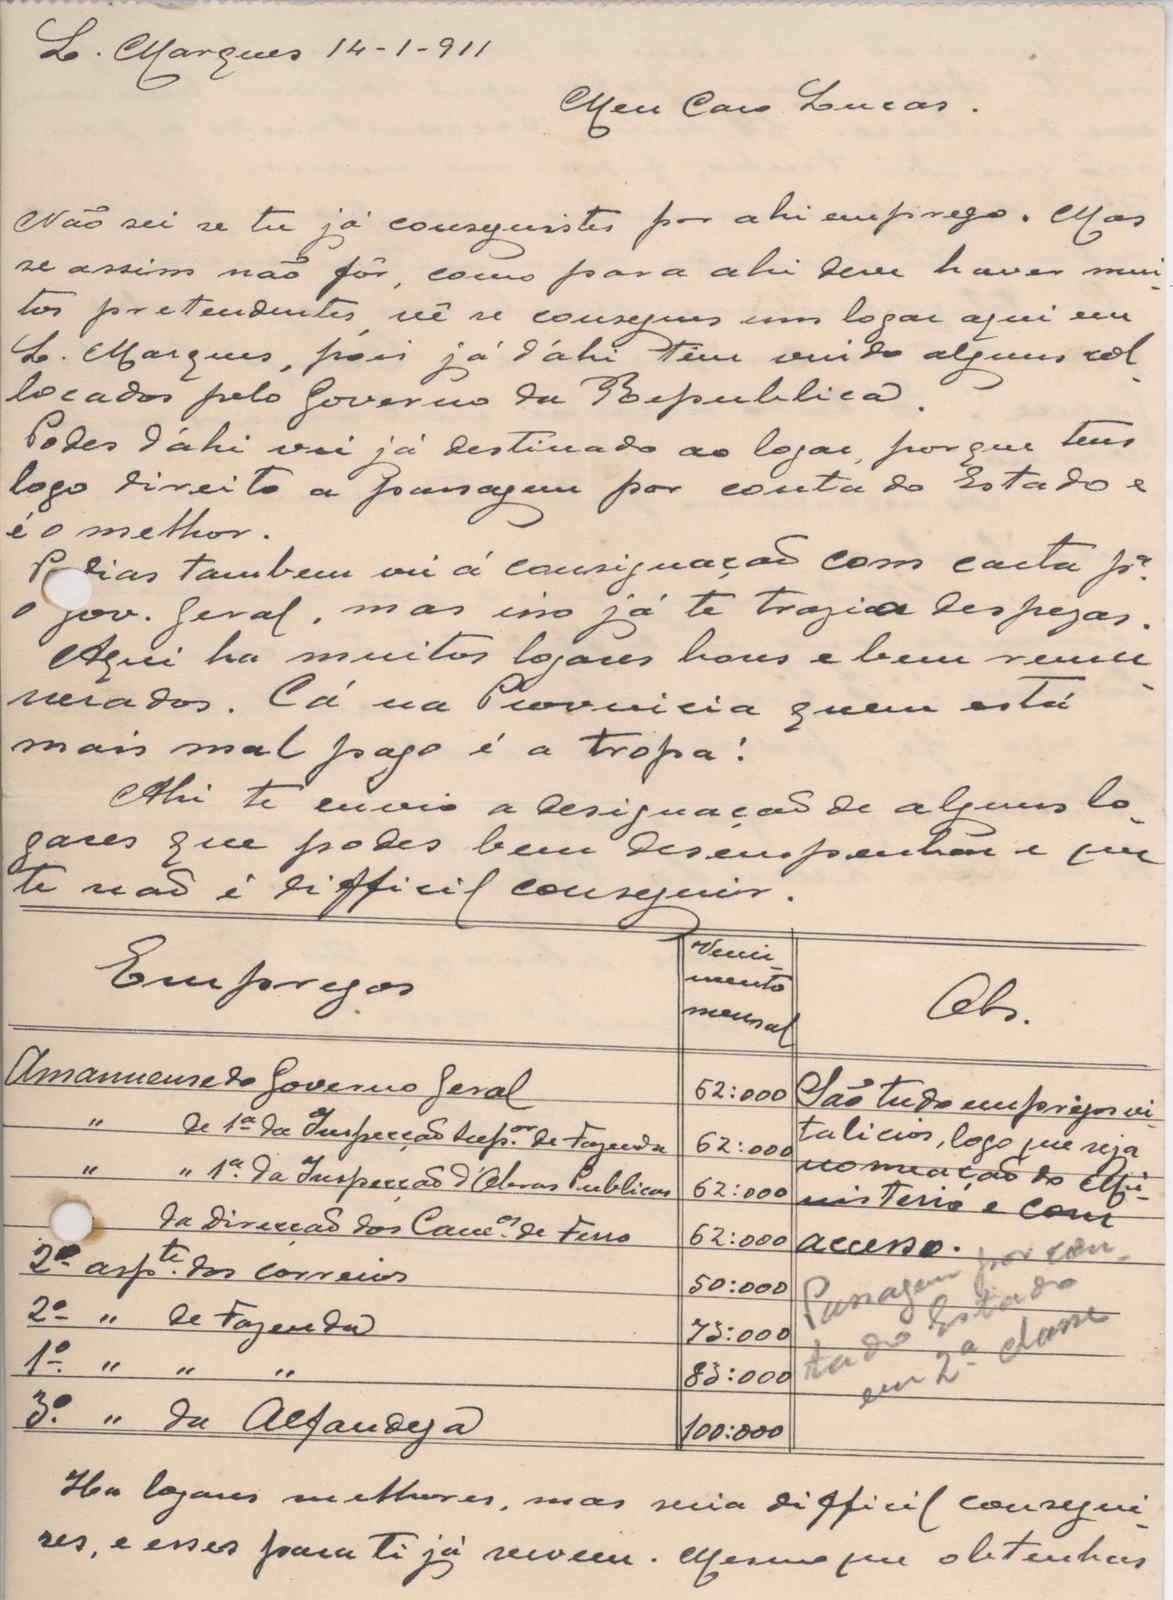 L. Marques 14-1-911
Meu Caro Lucas.
Não sei se tu já conseguistes por ahi emprego. Mas
se assim não fôr, como para ahi deve haver mui-
tos pretendentes, vê se consegues um logar aqui em
L. Marques, pois já d'áhi têm vindo alguns col-
locados pelo Governo da Republica.
Podes d'áhi vir já destinado ao logar, porque tens
logo direito a passagem por conta do Estado e
é o melhor.
Podias tambem vir á consignação com carta pª.
o gov. geral, mas isso já te trazia despezas.
Aqui ha muitos logares bons e bem remu-
nerados. Cá na Provincia quem está
mais mal pago é a tropa!
Ahi te envio a designação de alguns lo-
gares que podes bem desempenhar e que
te não é difficil conseguir.
Empregos
Venci-
mento
mensal
Obs.
Amanuense do Governo Geral 62:000
" de 1ª da Inspecção Sup.or de Fazenda 62:000
" " 1ª. da Inspecção d'Obras Publicas 62:000
da direcção dos Cam.os de Ferro 62:000
2º aspte. dos correios 50:000
2º " de Fazenda 75:000
1º. " " " 85:000
3º. " da Alfandega 100:000
São tudo empregos vi-
talicios, logo que seja
nomeação do Mi-
nisterio e com
accesso.
Passagem por con-
ta do Estado
em 2ª classe
Ha logares melhores, mas seria difficil consegui-
res, e esses para ti já servem. Mesmo que obtenhas